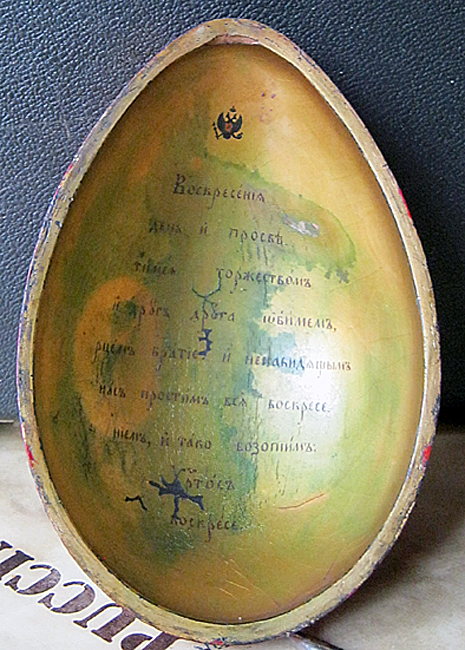 Воскресенія
день и просвѣ
тимся торжествомъ
и другъ друга ѡбымемъ,
рцемъ братіе и ненавидящымъ
насъ простимъ вся воскресе.
ніемъ, и тако возопіимъ:
Хртосъ
воскресе.
Русск